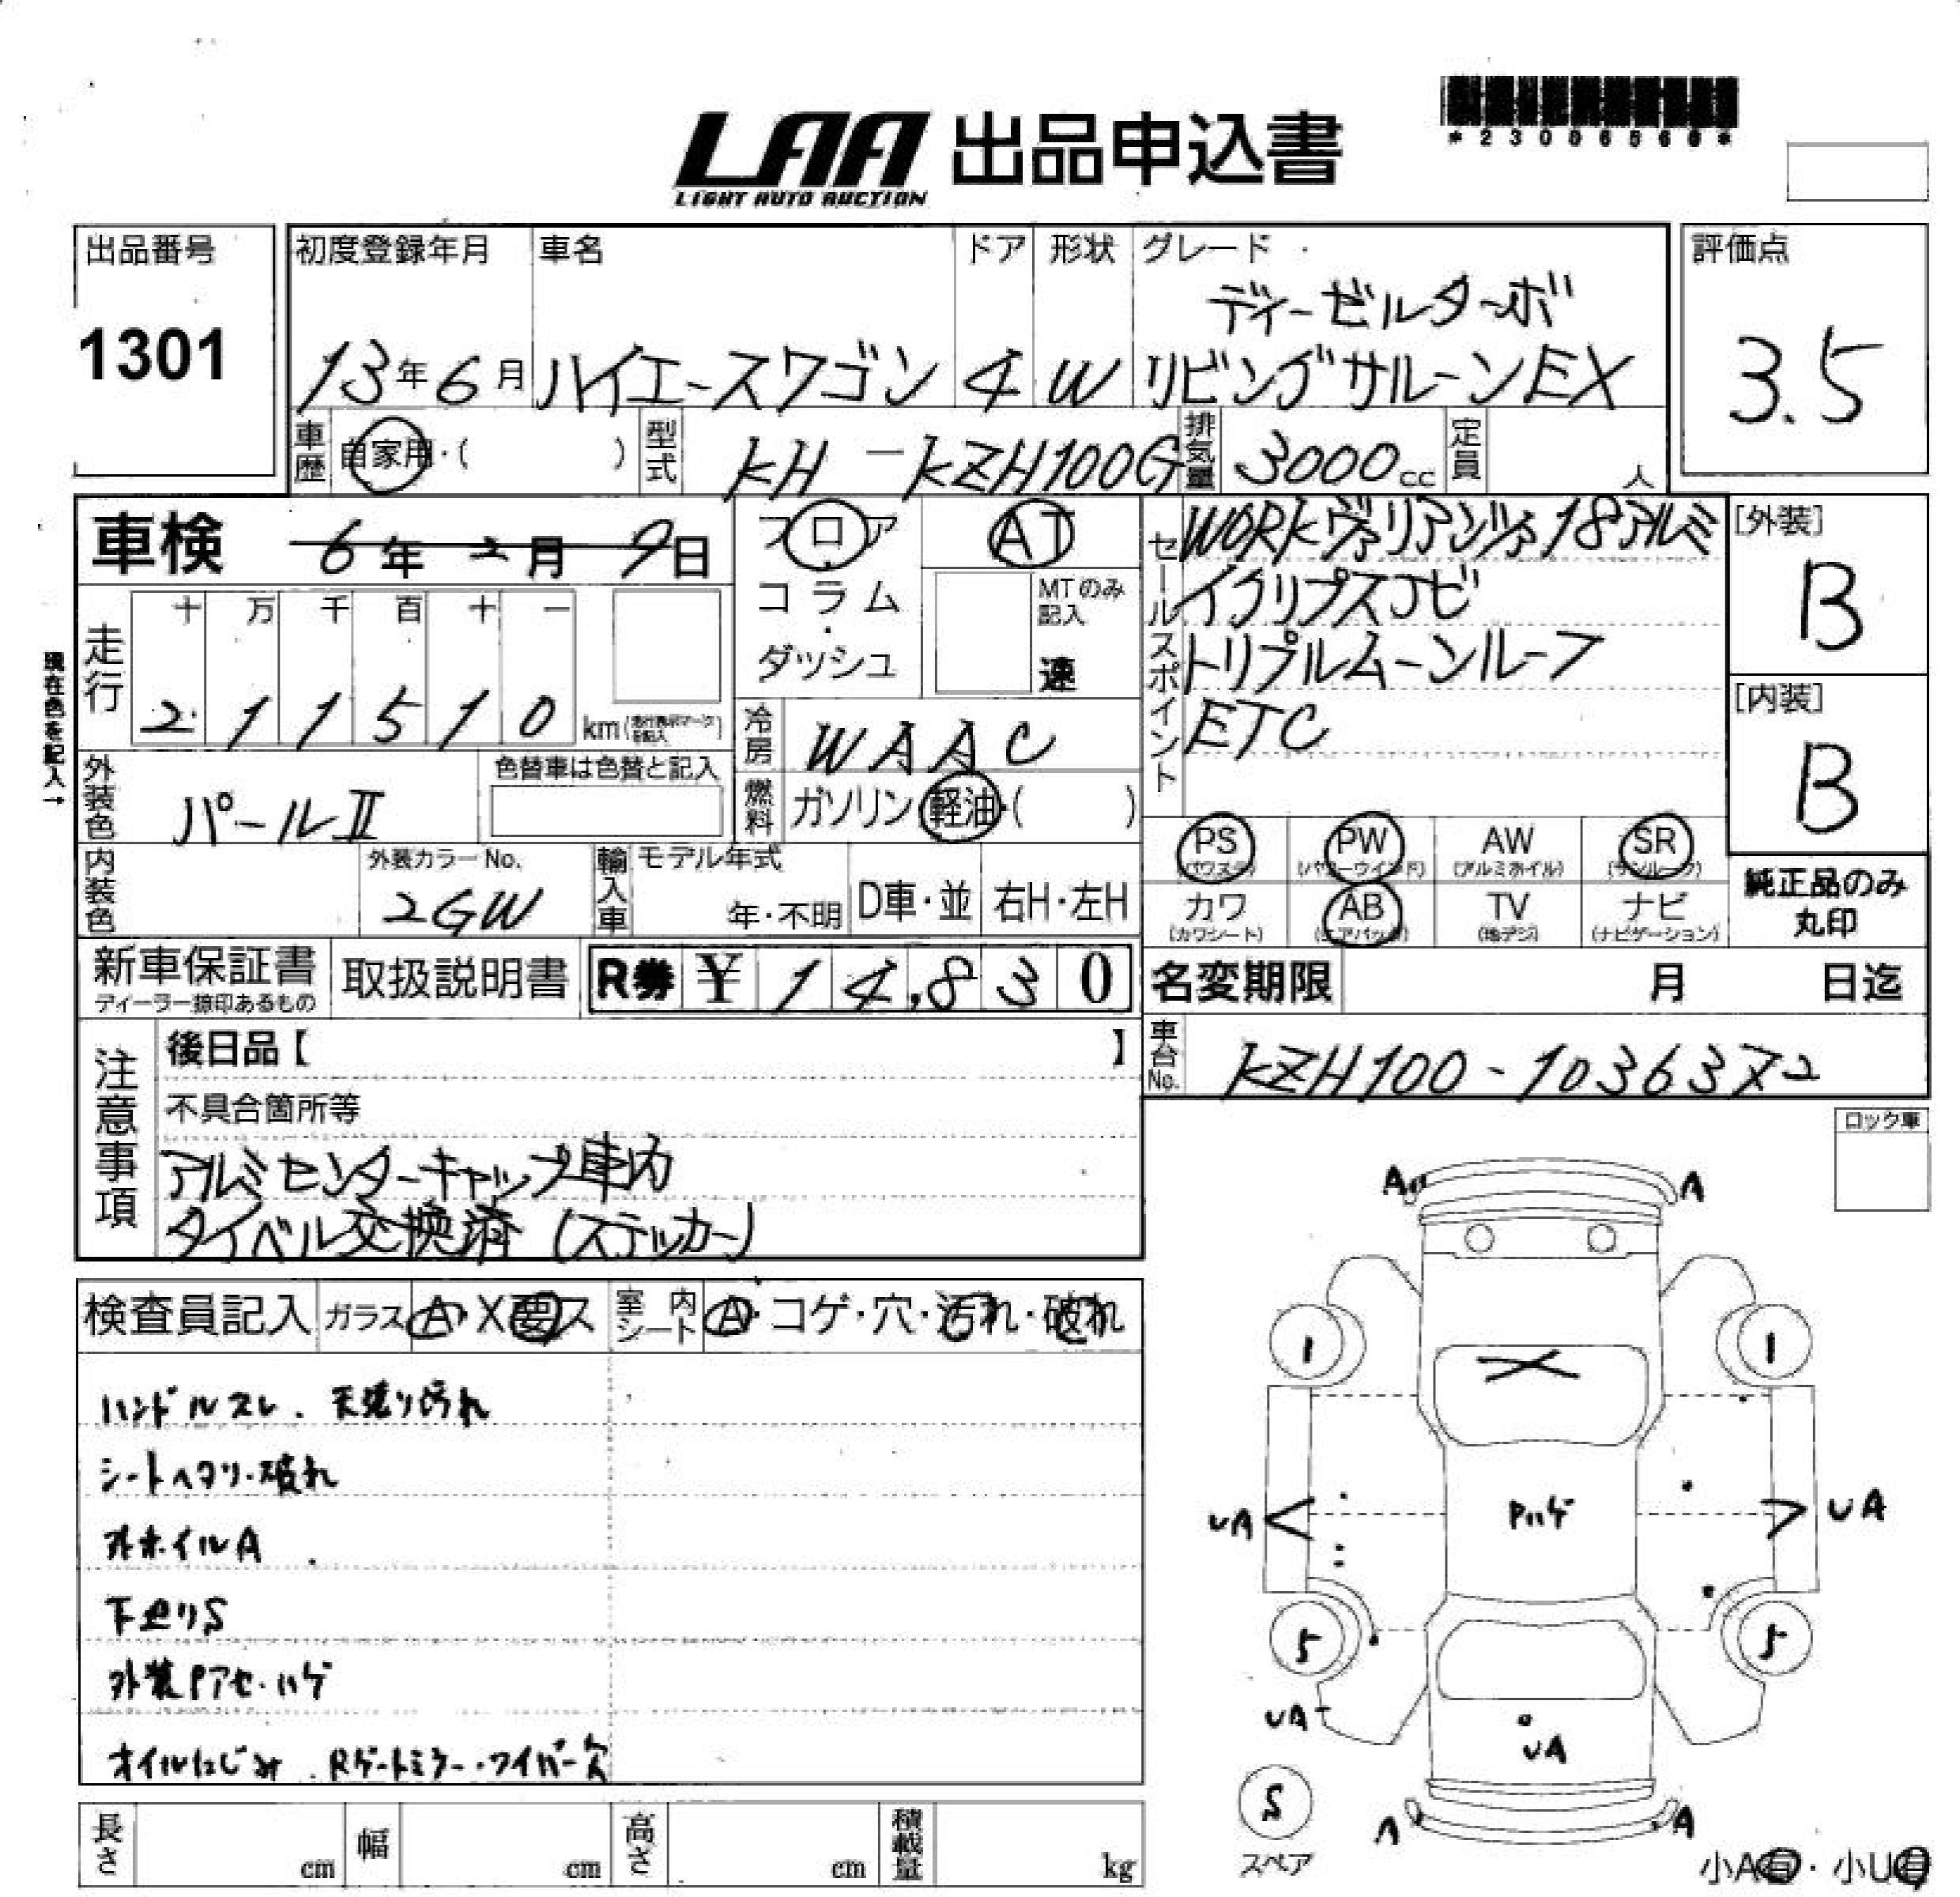 LAA 出品申込書
LIGHT AUTO AUCTION
*23006560*
出品番号
1301
初度登録年月 車名 ドア 形状 グレード
ディーゼルターボ
13年6月 ハイエースワゴン 4 W リビングサルーンEX
評価点
3.5
車歴 自家用・( ) 型式 KH-KZH100G 排気量 3000cc 定員 人
車検 6年2月9日
フロア AT
コラム
ダッシュ
MTのみ記入
速
セールスポイント
WORKヴァリアンツァ18アルミ
イクリプスナビ
トリプルムーンルーフ
ETC
[外装]
B
[内装]
B
現在色を記入→
走行 十 万 千 百 十 一
2 1 1 5 1 0 km
冷房 WAAC
燃料 ガソリン・軽油・( )
外装色 パールII
色替車は色替と記入
内装色
外装カラーNo.
2GW
輸入車 モデル年式 年・不明 D車・並 右H・左H
PS (パワステ) PW (パワーウインド) AW (アルミホイル) SR (サンルーフ)
カワ (カワシート) AB (エアバッグ) TV (地デジ) ナビ (ナビゲーション)
純正品のみ
丸印
新車保証書
ディーラー捺印あるもの
取扱説明書
R券 ¥ 14,830
名変期限 月 日迄
車台No. KZH100-1036372
注意事項
後日品【 】
不具合箇所等
アルミセンターキャップ車内
タイベル交換済 (ステッカー)
ロック車
検査員記入 ガラス A・X要ス 室内シート A・コゲ・穴・汚れ・破れ
ハンドルスレ. 天張り汚れ
シートヘタリ・破れ
外ホイルA
下廻りS
外装Pアセ・ハゲ
オイルにじみ. Rゲートミラー・ワイパー欠
A A
1 1
X
UA Pハゲ UA
5 5
UA
UA
S
スペア
A A
小A有・小U有
長さ cm 幅 cm 高さ cm 積載量 kg